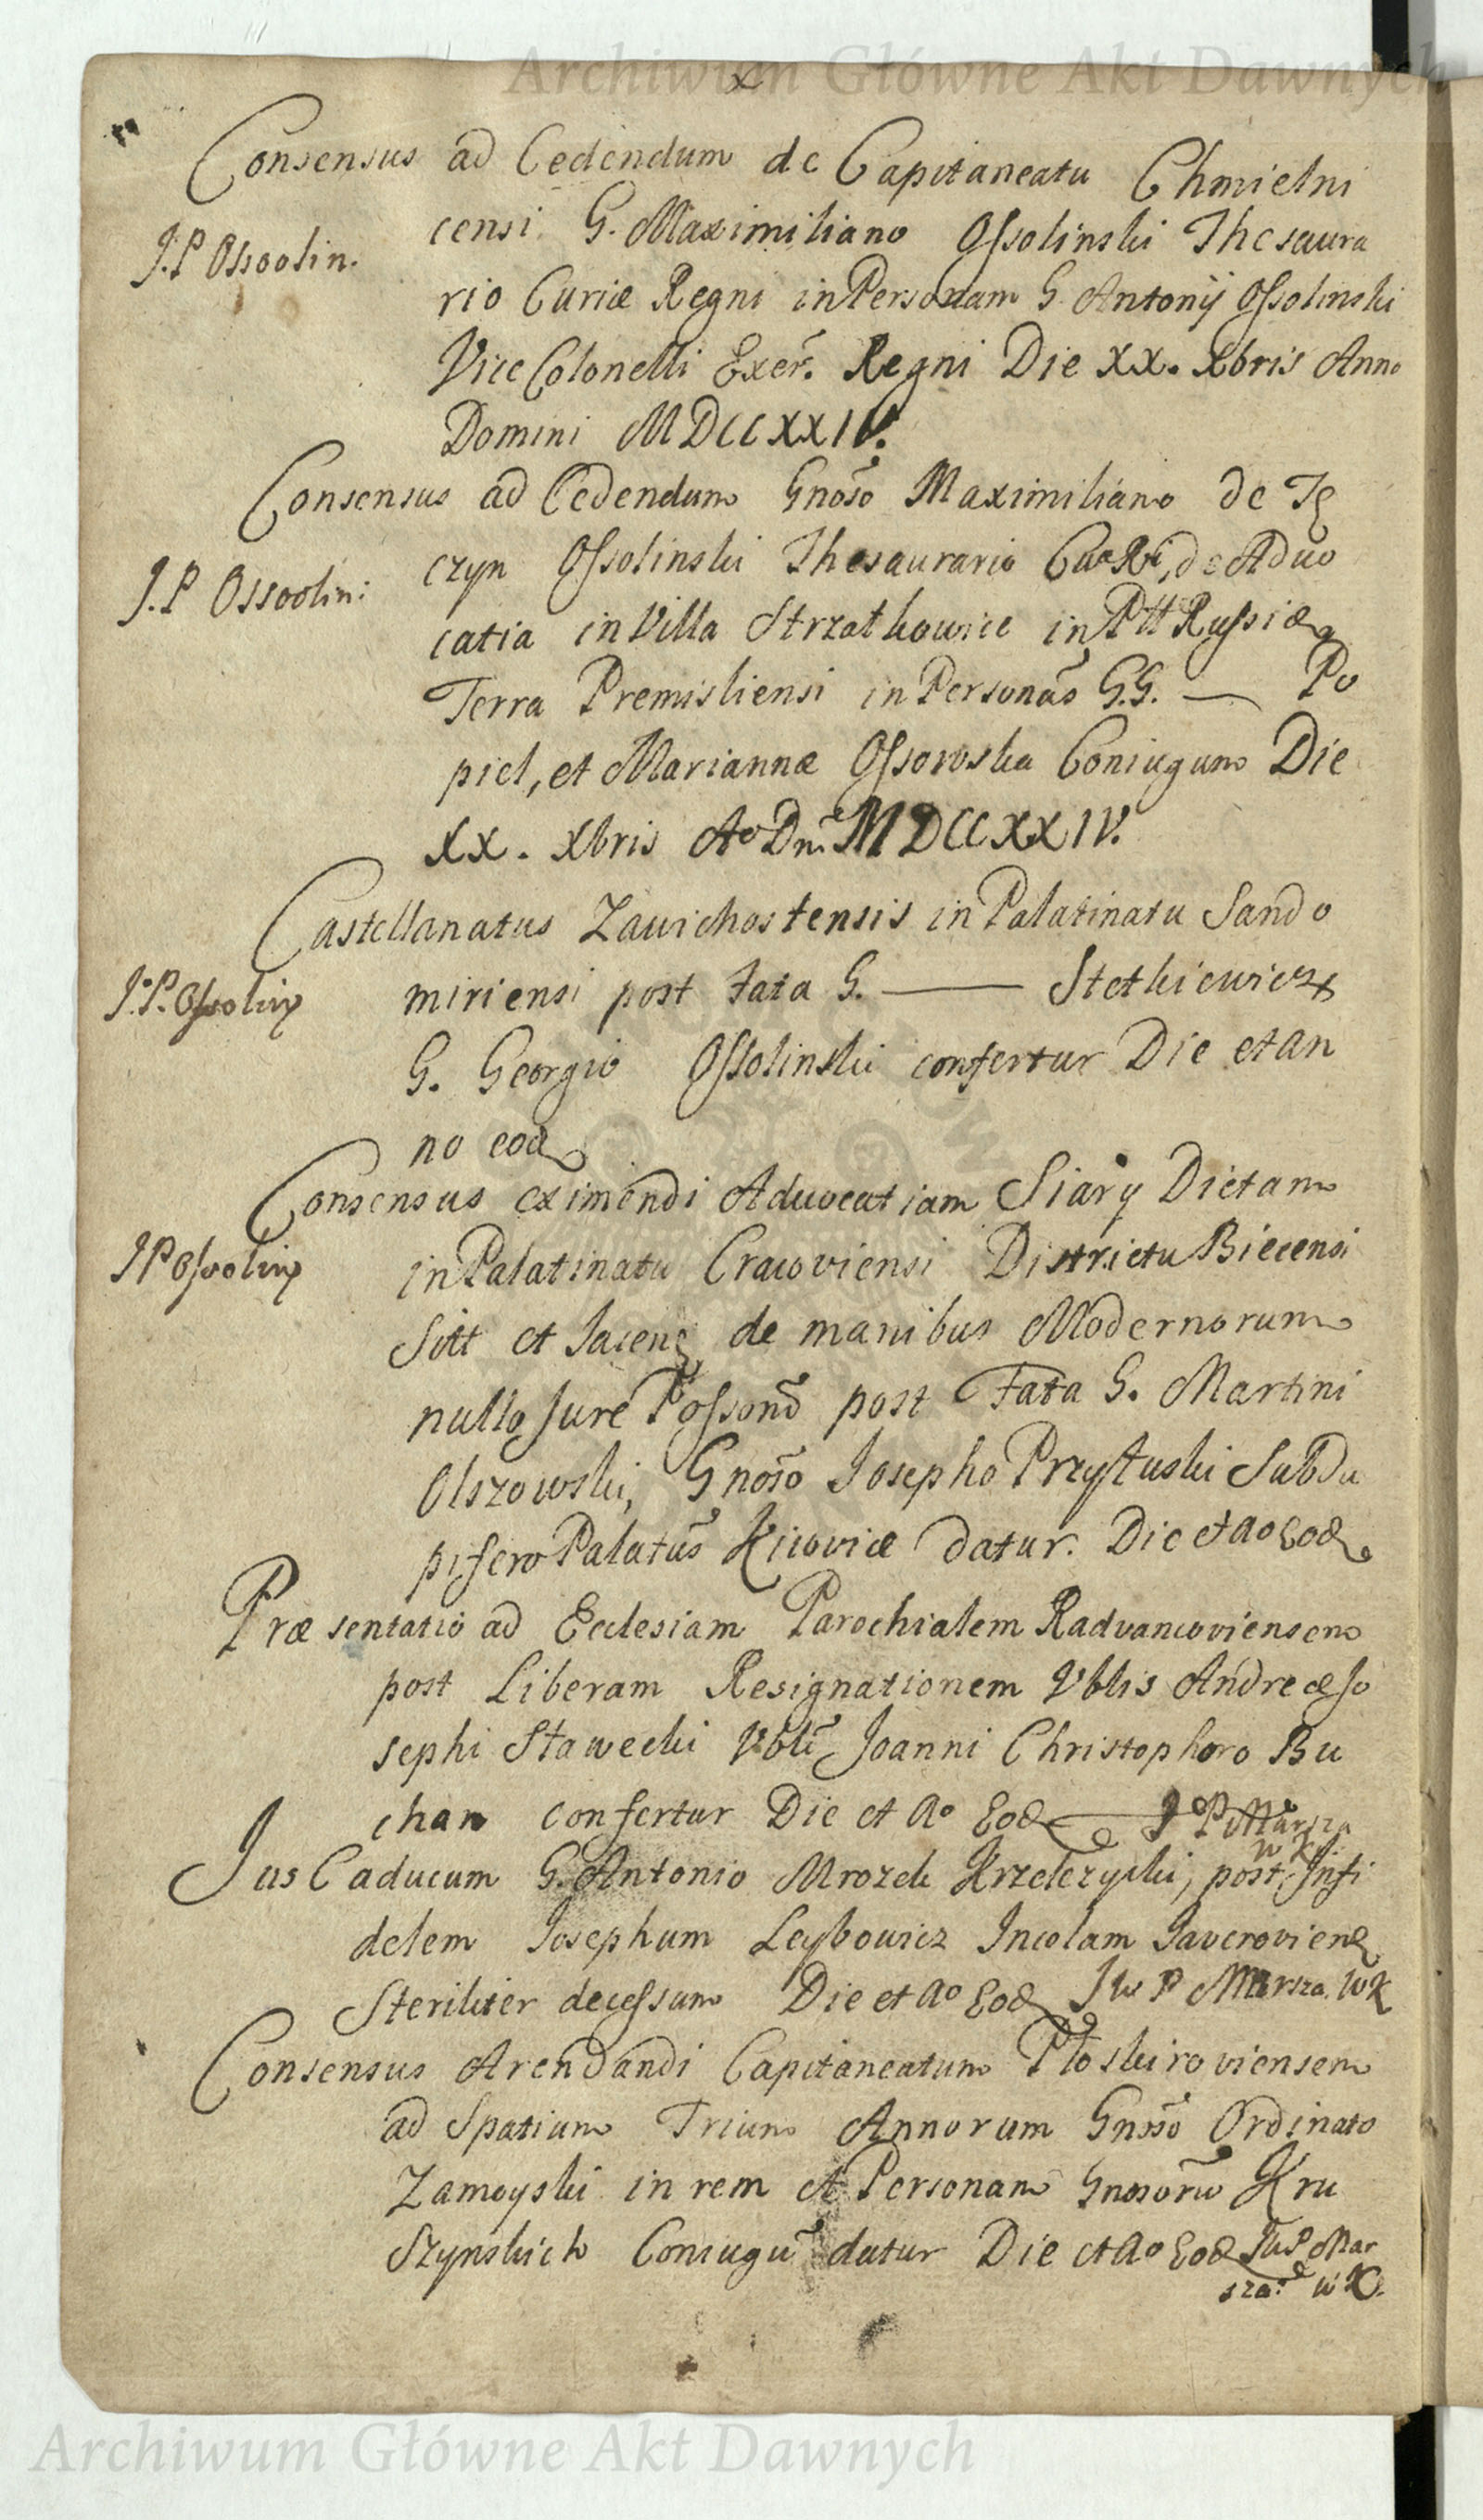 Archiwum Główne Akt Dawnych
Consensus ad Cedendum de Capitaneatu Chmielni
censi G. Maximiliano Ossolinski Thesaura
J.P Ossoolin.
rio Curiæ Regni in Personam G Antonij Ossolinski
Vice Colonelli Exer. Regni Die XX. Xbris Anno
Domini MDCCXXIV.
Consensus ad Cedendum Gnoso Maximiliano de Tę
czyn Ossolinski Thesaurario de Advo
J.P Ossoolin:
catia in Villa Strzatkowice in Ptt Russiæ
Terra Premisliensi in Personas G.G. — Po
piel, et Mariannæ Ossowska Coniugum Die
XX. Xbris Ao Dni MDCCXXIV.
Castellanatus Zawichostensis in Palatinatu Sando
miriensi post Fata G. — Stetkiewicz
J.P. Ossolin
G. Georgio Ossolinski confertur Die et an
no eod
Consensus eximendi Advocatiam Siary Dictam
in Palatinatu Cracoviensi Districtu Biecensi
J P Ossolin
Sitt et Jacen de manibus Modernorum
nullo Jure Possono post Fata G. Martini
Olszowski, Gnoso Josepho Przyłuski Subda
pifero Palatus Kijoviæ datur. Die et ao Eod
Præsentatio ad Ecclesiam Parochialem Radvancoviensem
post Liberam Resignationem Vblis Andreæ Jo
sephi Stawecki Vbli Joanni Christophoro Bu
chan confertur Die et Ao Eod J P Marsza
w K
Jus Caducum G. Antonio Mrozek Krzeleczycki, post Infi
delem Josephum Leybowicz Incolam Javorovien
Steriliter decessum Die et Ao Eod J W P Marsza. WK
Consensus Arendandi Capitaneatum Płoskiroviensem
ad Spatium Trium Annorum Gnoso Ordinato
Zamoyski in rem et Personam Gnosoru Kru
Szynskich Coniugu datur Die et Ao Eod JWP Mar
sza: w K.
Archiwum Główne Akt Dawnych